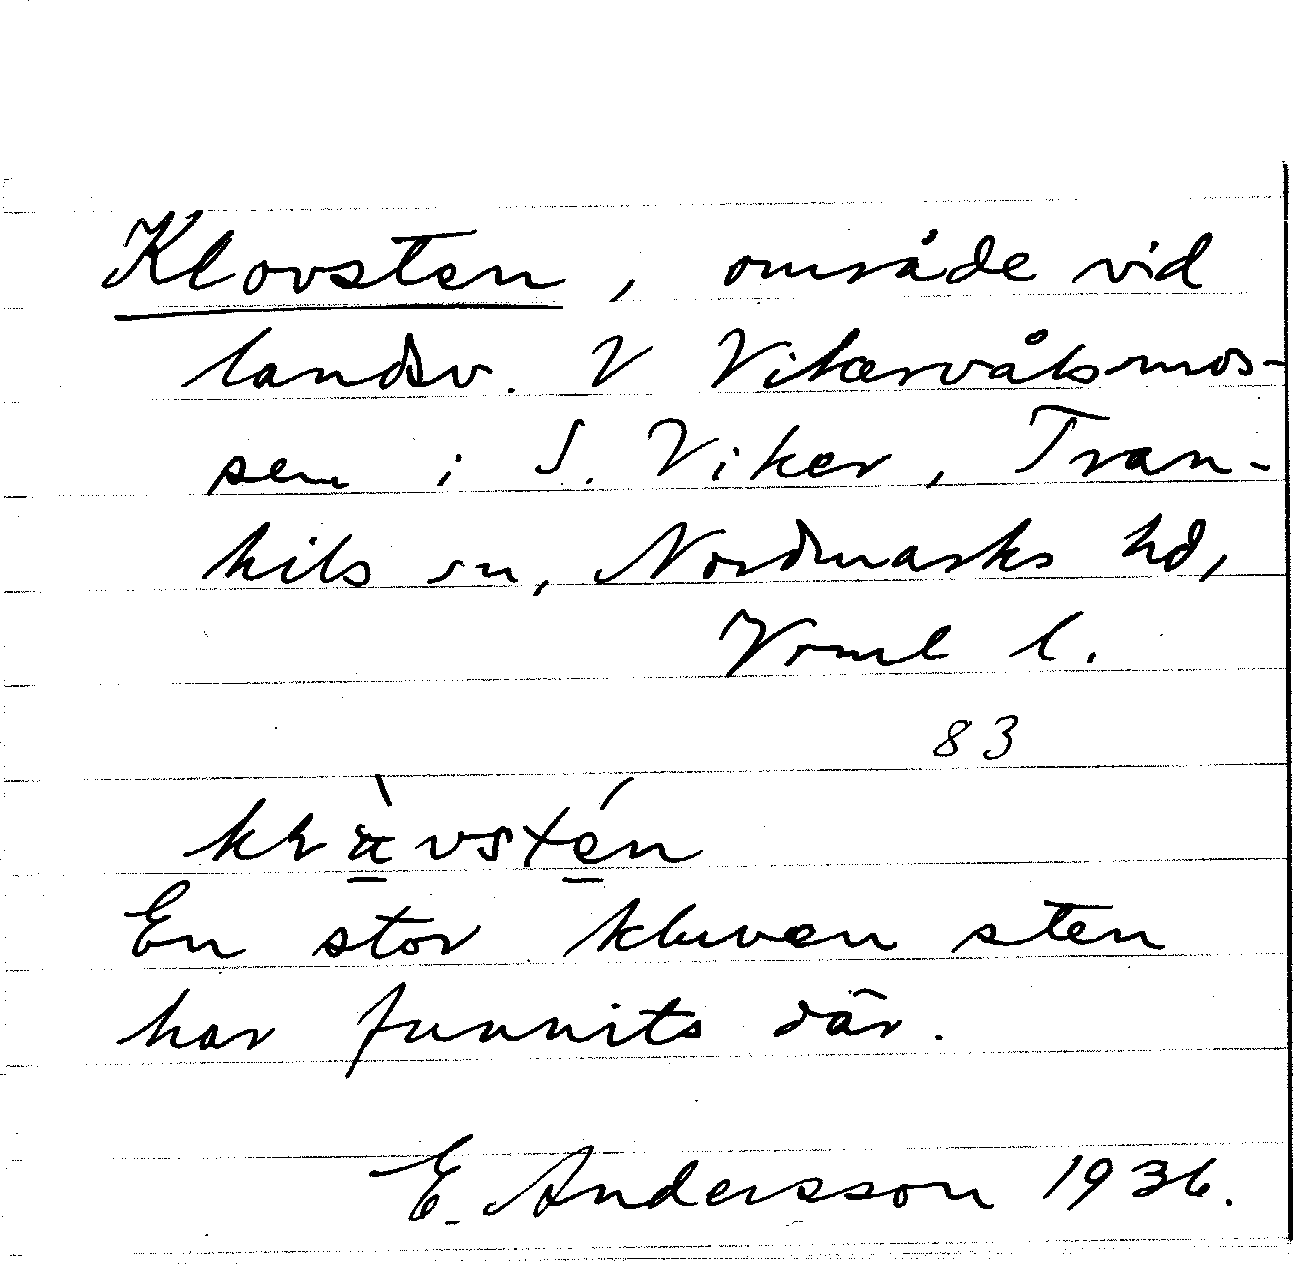 Klovsten, område vid
landsv. V Vikervålsmos-
sen i S. Viker, Tran-
kils sn, Nordmarks hd,
Vrml l.
83
En stor kluven sten
har funnits där.
E. Andersson 1936.